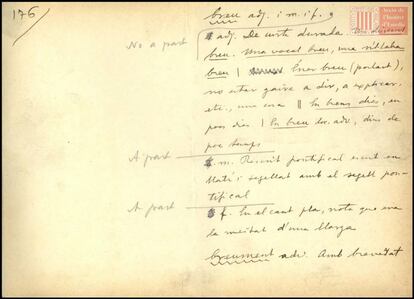 176
breu adj. i m. i f.
No a part
adj. De curta durada. Un discurs
breu. Una vocal breu, una síl·laba
breu || Ésser breu (parlant),
no estar gaire a dir, a explicar,
etc., una cosa || En breus dies, en
pocs dies | En breu loc. adv., dins de
poc temps
A part
m. Rescrit pontifical escrit en
llatí i segellat amb el segell pon-
tifical
A part
f. En el cant pla, nota que val
la meitat d'una llarga
breument adv. Amb brevedat